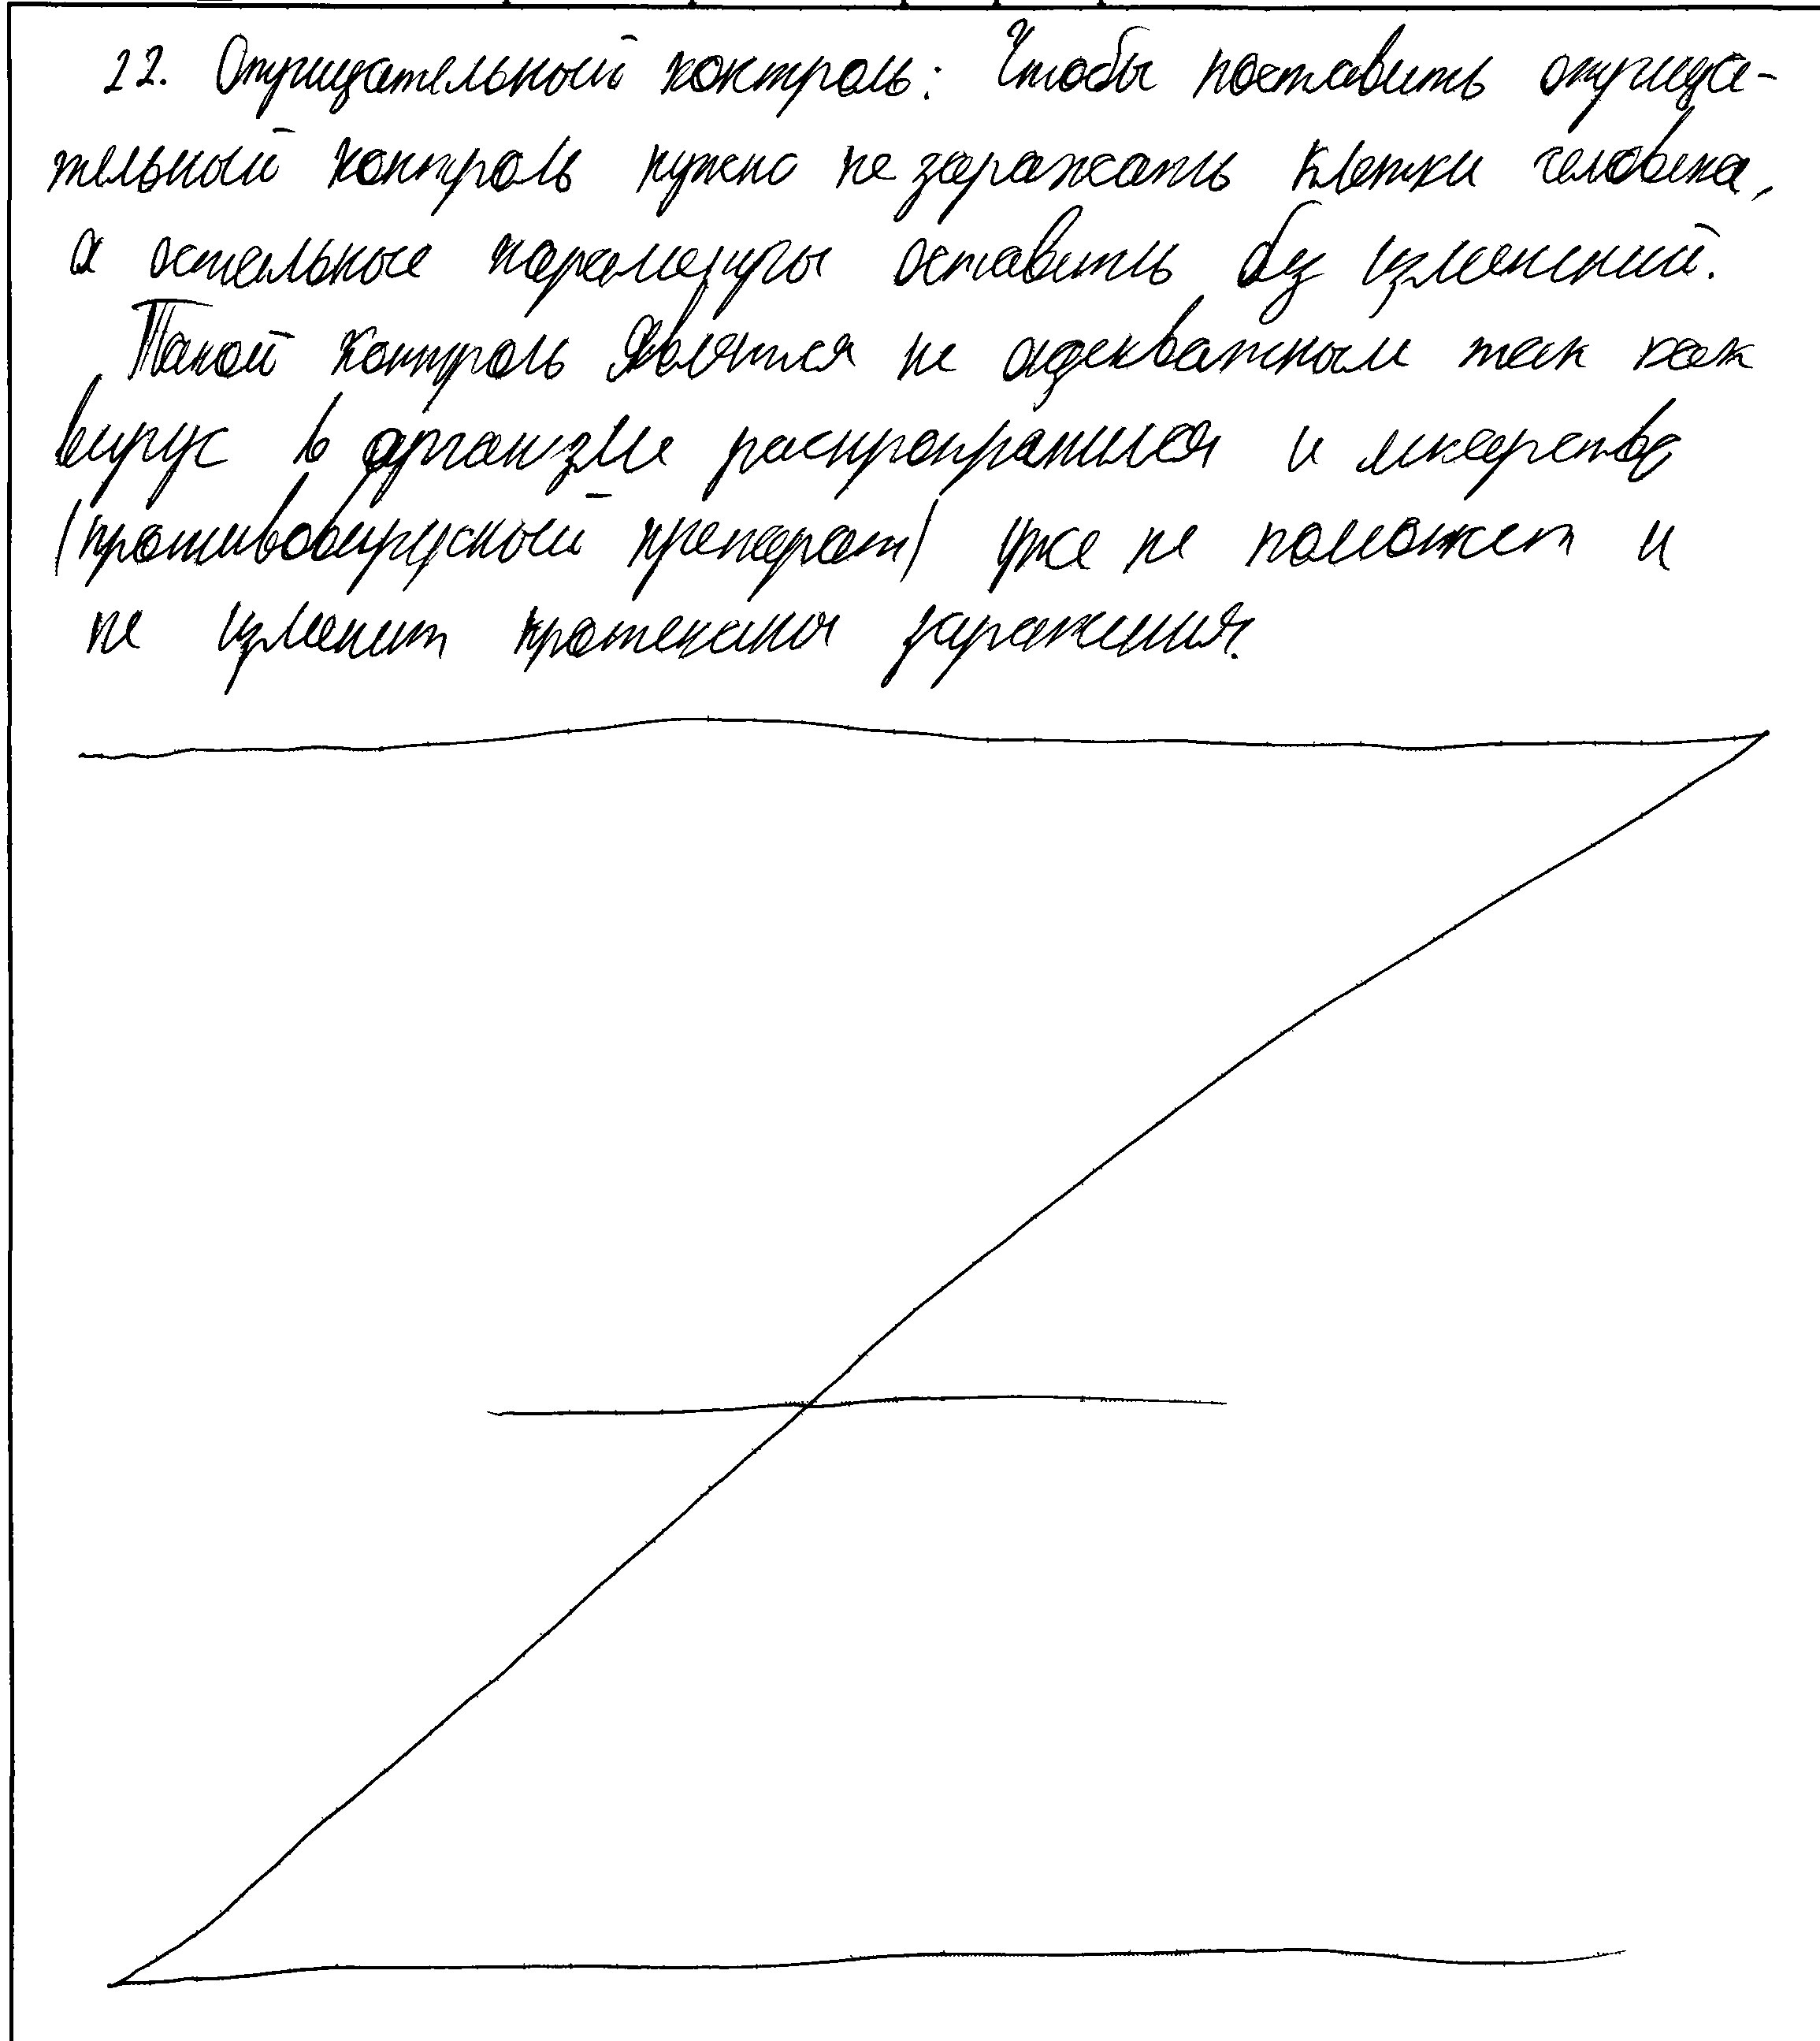 22. Отрицательный контроль: Чтобы поставить отрица-
тельный контроль нужно не заражать клетки человека,
а остальные параметры оставить без изменений.
Такой контроль является не адекватным так как
вирус в организме распространился и лекарства
(противовирусный препарат) уже не поможет и
не изменит протекания заражения.